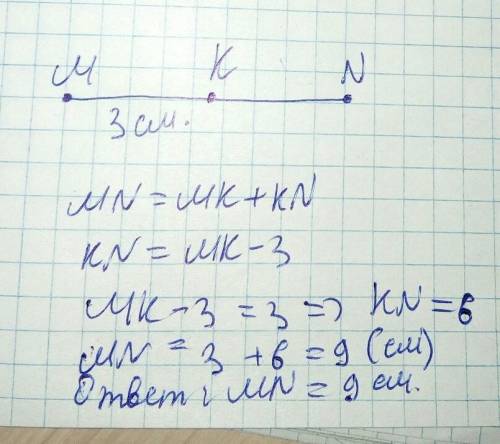 М К N
3 см.
MN = MK + KN
KN = MK - 3
MK - 3 = 3 => KN = 6
MN = 3 + 6 = 9 (см)
Ответ: MN = 9 см.